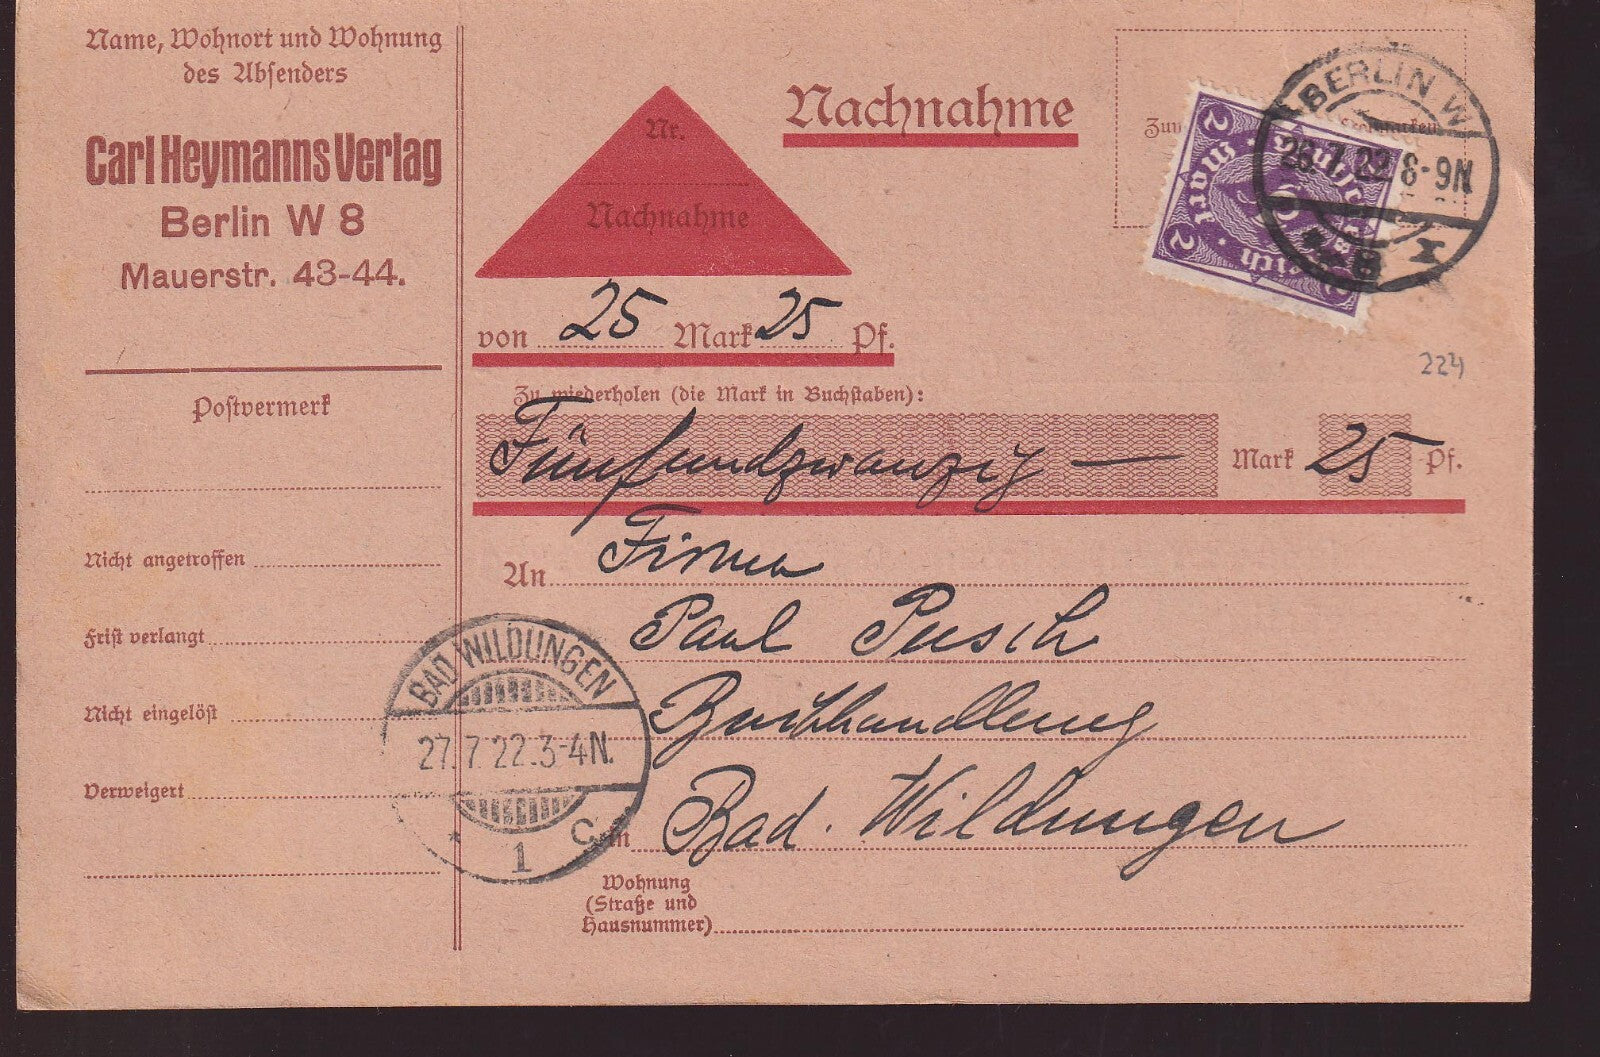 Name, Wohnort und Wohnung
des Absenders
Carl Heymanns Verlag
Berlin W 8
Mauerstr. 43-44.
Postvermerk
Nicht angetroffen
Frist verlangt
Nicht eingelöst
Verweigert
Nachnahme
Nr.
Nachnahme
von 25 Mark 25 Pf.
Zu wiederholen (die Mark in Buchstaben):
Fünfundzwanzig — Mark 25 Pf.
An Firma
Paul Pusch
Buchhandlung
in Bad. Wildungen
Wohnung
(Straße und
Hausnummer)
Deutsches Reich
2 Mark 2
2
BERLIN W
26.7.22 8-9N
* 8 r
224
BAD WILDUNGEN
27.7.22.3-4N.
* 1 c